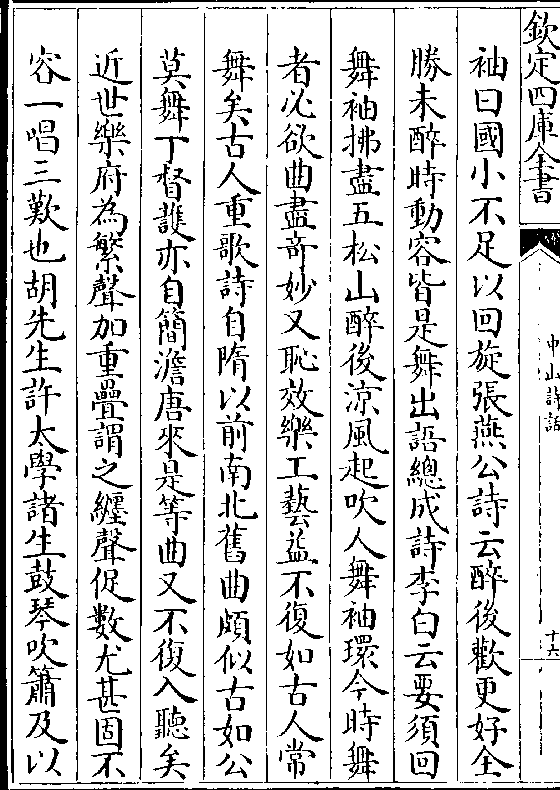 欽定四庫全書
中山詩話
十六
袖曰國小不足以回旋張燕公詩云醉後歡更好全
勝未醉時動容皆是舞出語總成詩李白云要須回
舞袖拂盡五松山醉後涼風起吹人舞袖環今時舞
者必欲曲盡奇妙又恥效樂工藝益不復如古人常
舞矣古人重歌詩自隋以前南北舊曲頗似古如公
莫舞丁督護亦自簡澹唐來是等曲又不復入聽矣
近世樂府為繁聲加重疊謂之纏聲促數尤甚固不
容一唱三歎也胡先生許太學諸生鼓琴吹簫及以